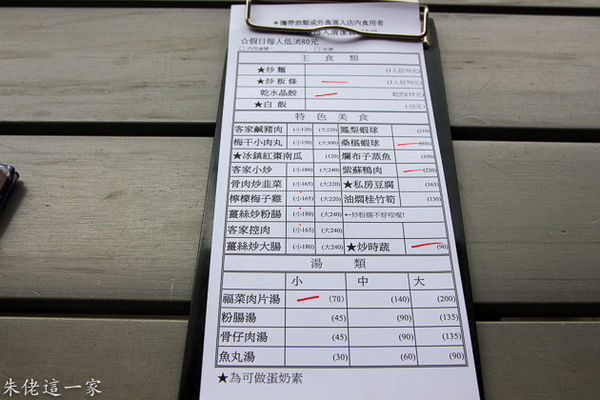 ＊攜帶酒類或外食進入店內食用者
☆假日每人低消80元
主食類
★炒麵 (1人份70元)
★炒粄條 (1人份70元)
乾水晶餃 乾的(55元)
★白飯 (10元)
特色美食
客家鹹豬肉 (小120) (大220) 鳳梨蝦球 (210)
梅干小肉丸 (小150) (大300) 桑椹蝦球
★冰鎮紅棗南瓜 (120) 爛布子蒸魚 (350)
客家小炒 (小180) (大240) 紫蘇鴨肉 (220)
骨肉炒韭菜 (小165) (大220) ★私房豆腐 (165)
檸檬梅子雞 (小165) (大240) 油燜桂竹筍 (130)
薑絲炒粉腸 (小180) (大240) ←炒粉腸不好咬喔!
客家控肉 (小165) (大240)
薑絲炒大腸 (小180) (大240) ★炒時蔬 (90)
湯類
小 中 大
福菜肉片湯 (70) (140) (200)
粉腸湯 (45) (90) (135)
骨仔肉湯 (45) (90) (135)
魚丸湯 (30) (60) (90)
★為可做蛋奶素
朱佬這一家